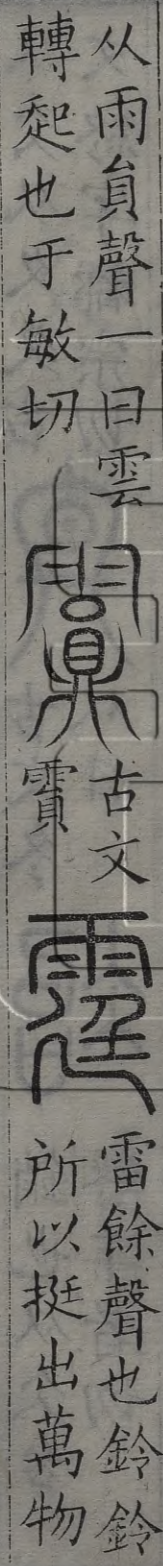 从雨員聲一曰雲
轉起也于敏切
古文
霣
霆
雷餘聲也鈴鈴
所以挺出萬物